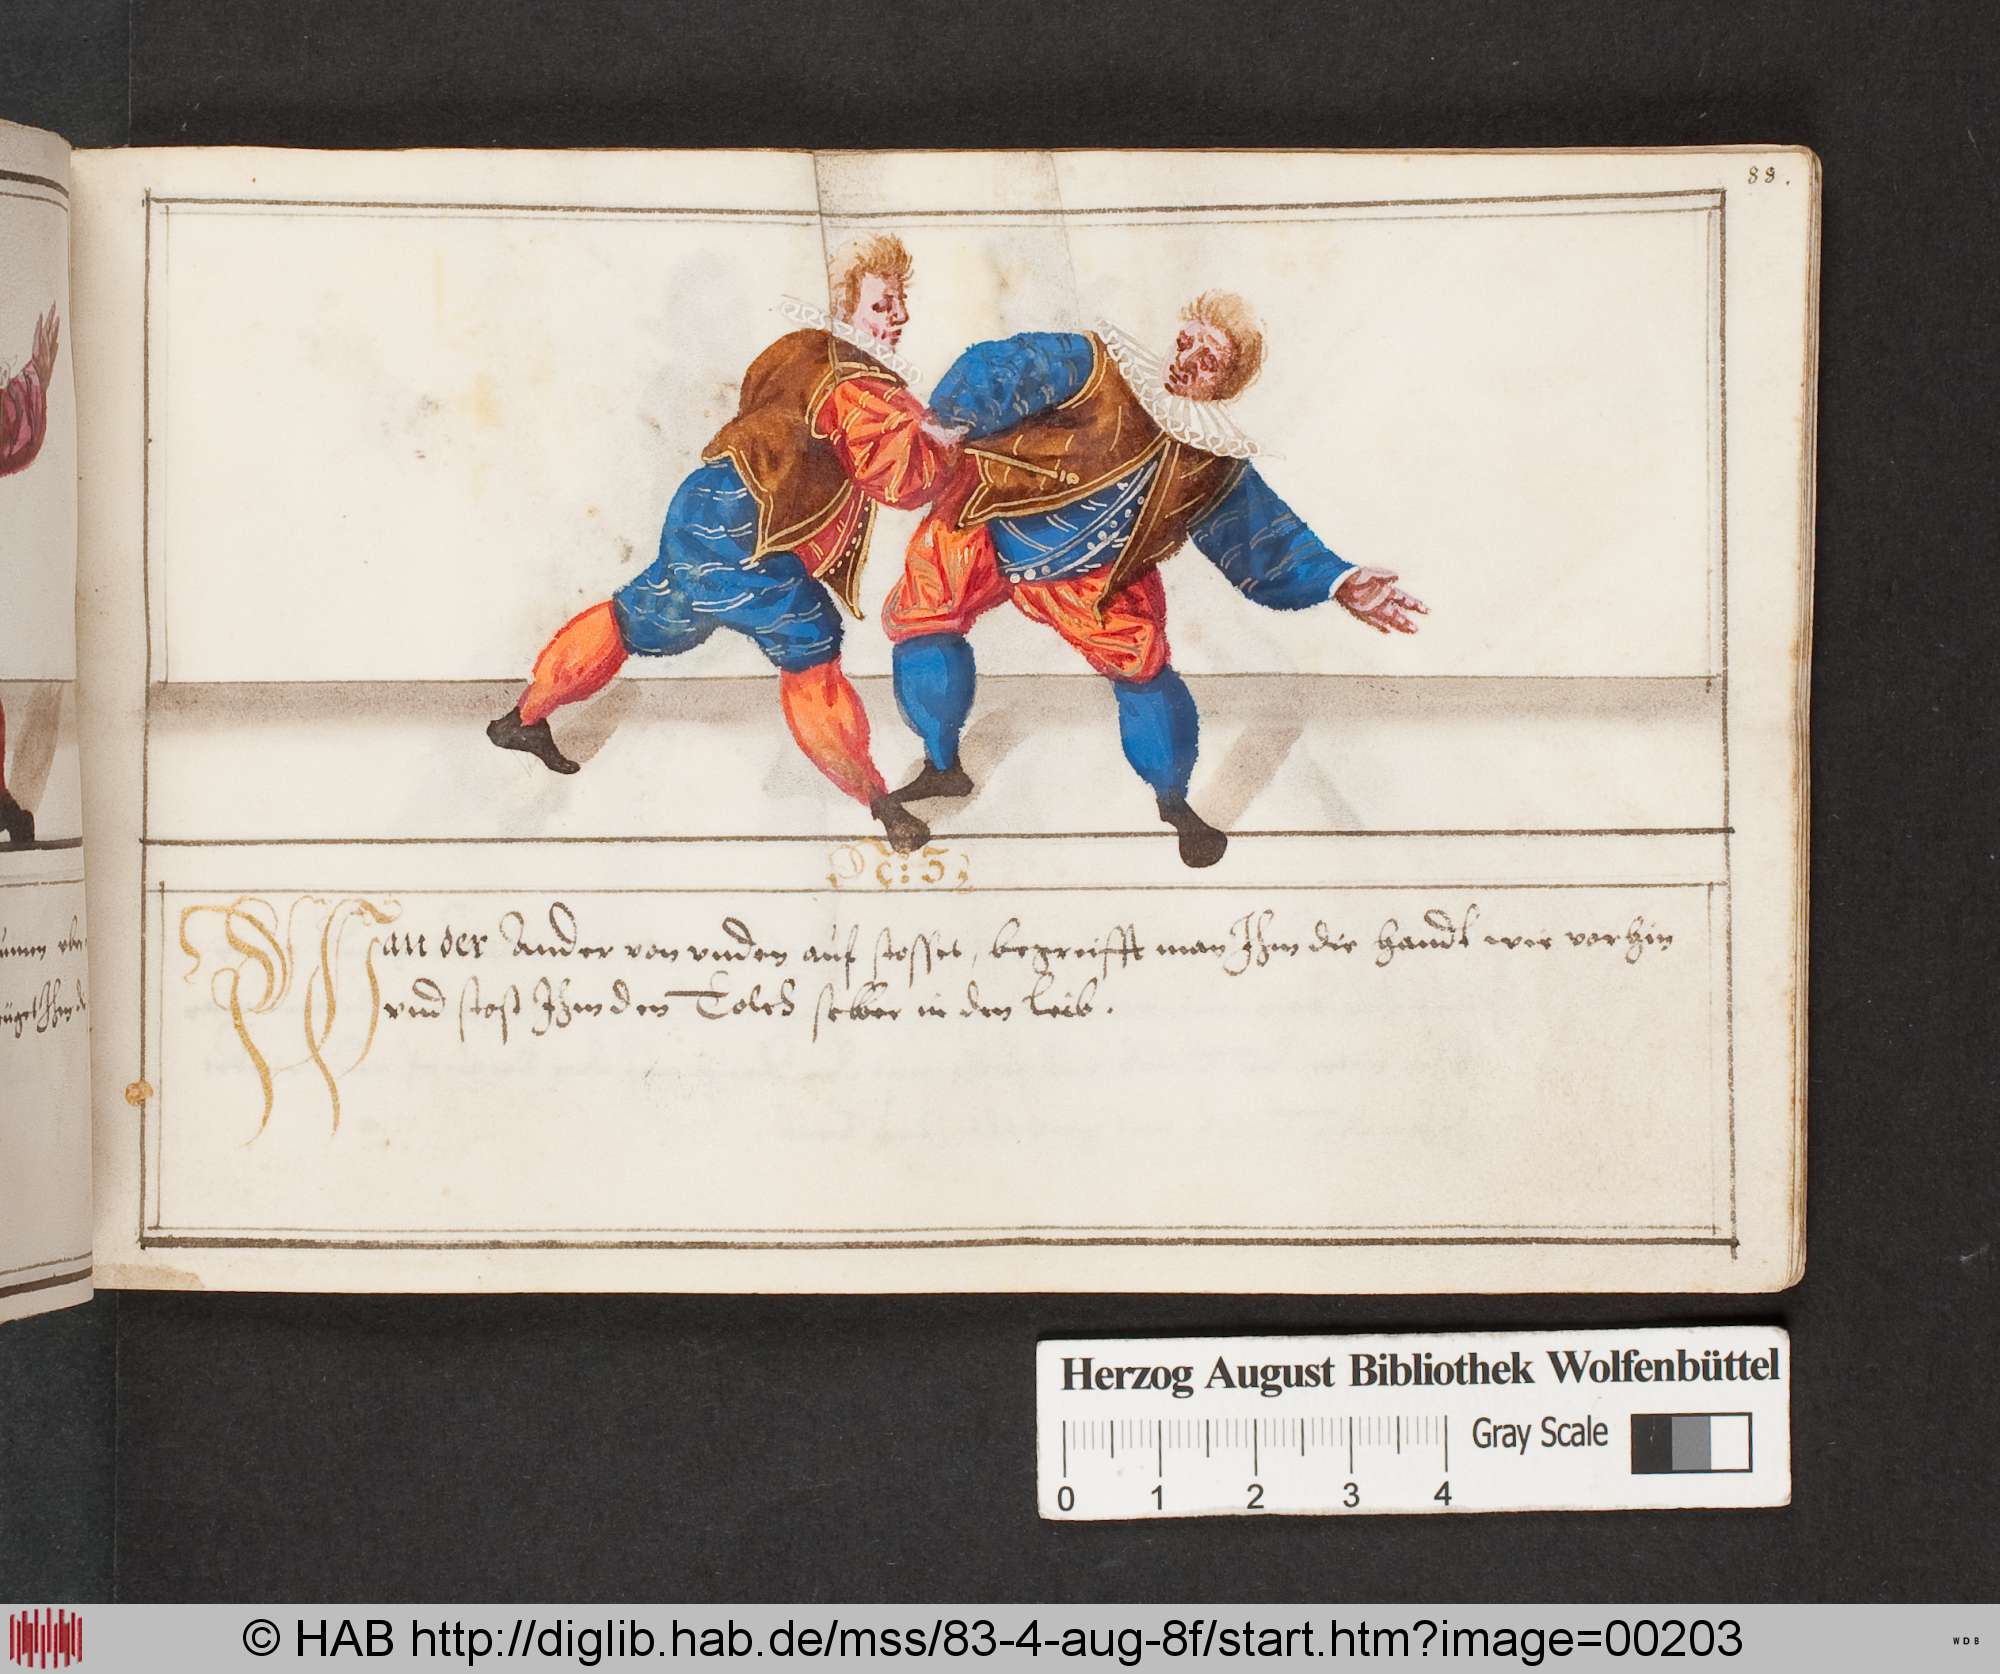 88.
N: 5
Wan der Ander von vnden auf stosset, begreifft man Ihm die handt wie vorhin
vnd stost Ihm den Tolch selber in den Leib.
Herzog August Bibliothek Wolfenbüttel
Gray Scale
0 1 2 3 4
© HAB http://diglib.hab.de/mss/83-4-aug-8f/start.htm?image=00203
WDB